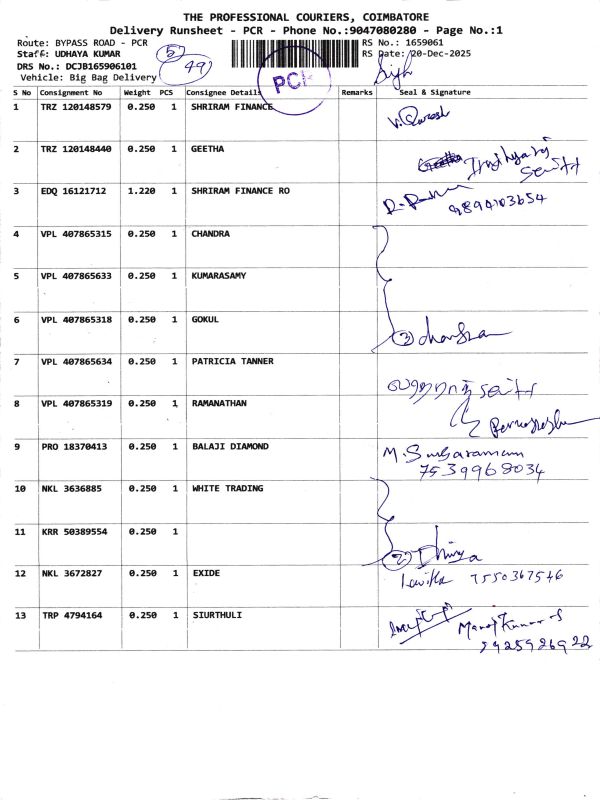 THE PROFESSIONAL COURIERS, COIMBATORE
Delivery Runsheet - PCR - Phone No.:9047080280 - Page No.:1
Route: BYPASS ROAD - PCR RS No.: 1659061
Staff: UDHAYA KUMAR RS Date: 20-Dec-2025
DRS No.: DCJB165906101
Vehicle: Big Bag Delivery
S No Consignment No Weight PCS Consignee Details Remarks Seal & Signature
1 TRZ 120148579 0.250 1 SHRIRAM FINANCE
2 TRZ 120148440 0.250 1 GEETHA
3 EDQ 16121712 1.220 1 SHRIRAM FINANCE RO
9894103654
4 VPL 407865315 0.250 1 CHANDRA
5 VPL 407865633 0.250 1 KUMARASAMY
6 VPL 407865318 0.250 1 GOKUL
7 VPL 407865634 0.250 1 PATRICIA TANNER
8 VPL 407865319 0.250 1 RAMANATHAN
9 PRO 18370413 0.250 1 BALAJI DIAMOND
7539968034
10 NKL 3636885 0.250 1 WHITE TRADING
11 KRR 50389554 0.250 1
12 NKL 3672827 0.250 1 EXIDE 7550367546
13 TRP 4794164 0.250 1 SIURTHULI